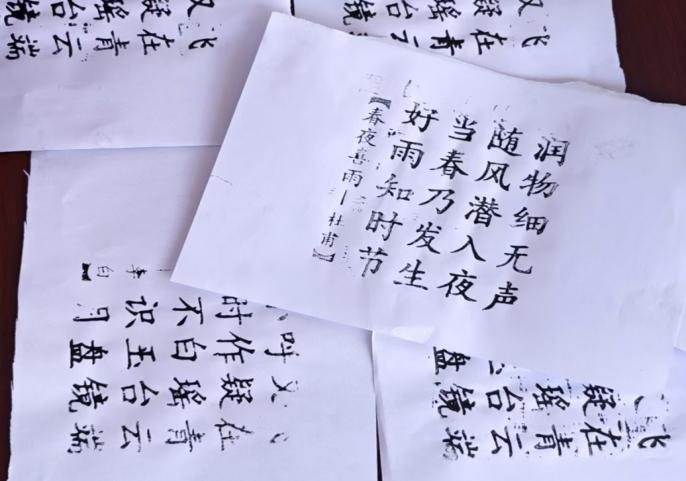 又疑瑶台镜
飞在青云端
又疑瑶台镜
飞在青云端
【春夜喜雨|杜甫】
好雨知时节
当春乃发生
随风潜入夜
润物细无声
李白】
时不识月
呼作白玉盘
又疑瑶台镜
飞在青云端
盘
疑瑶台镜
飞在青云端